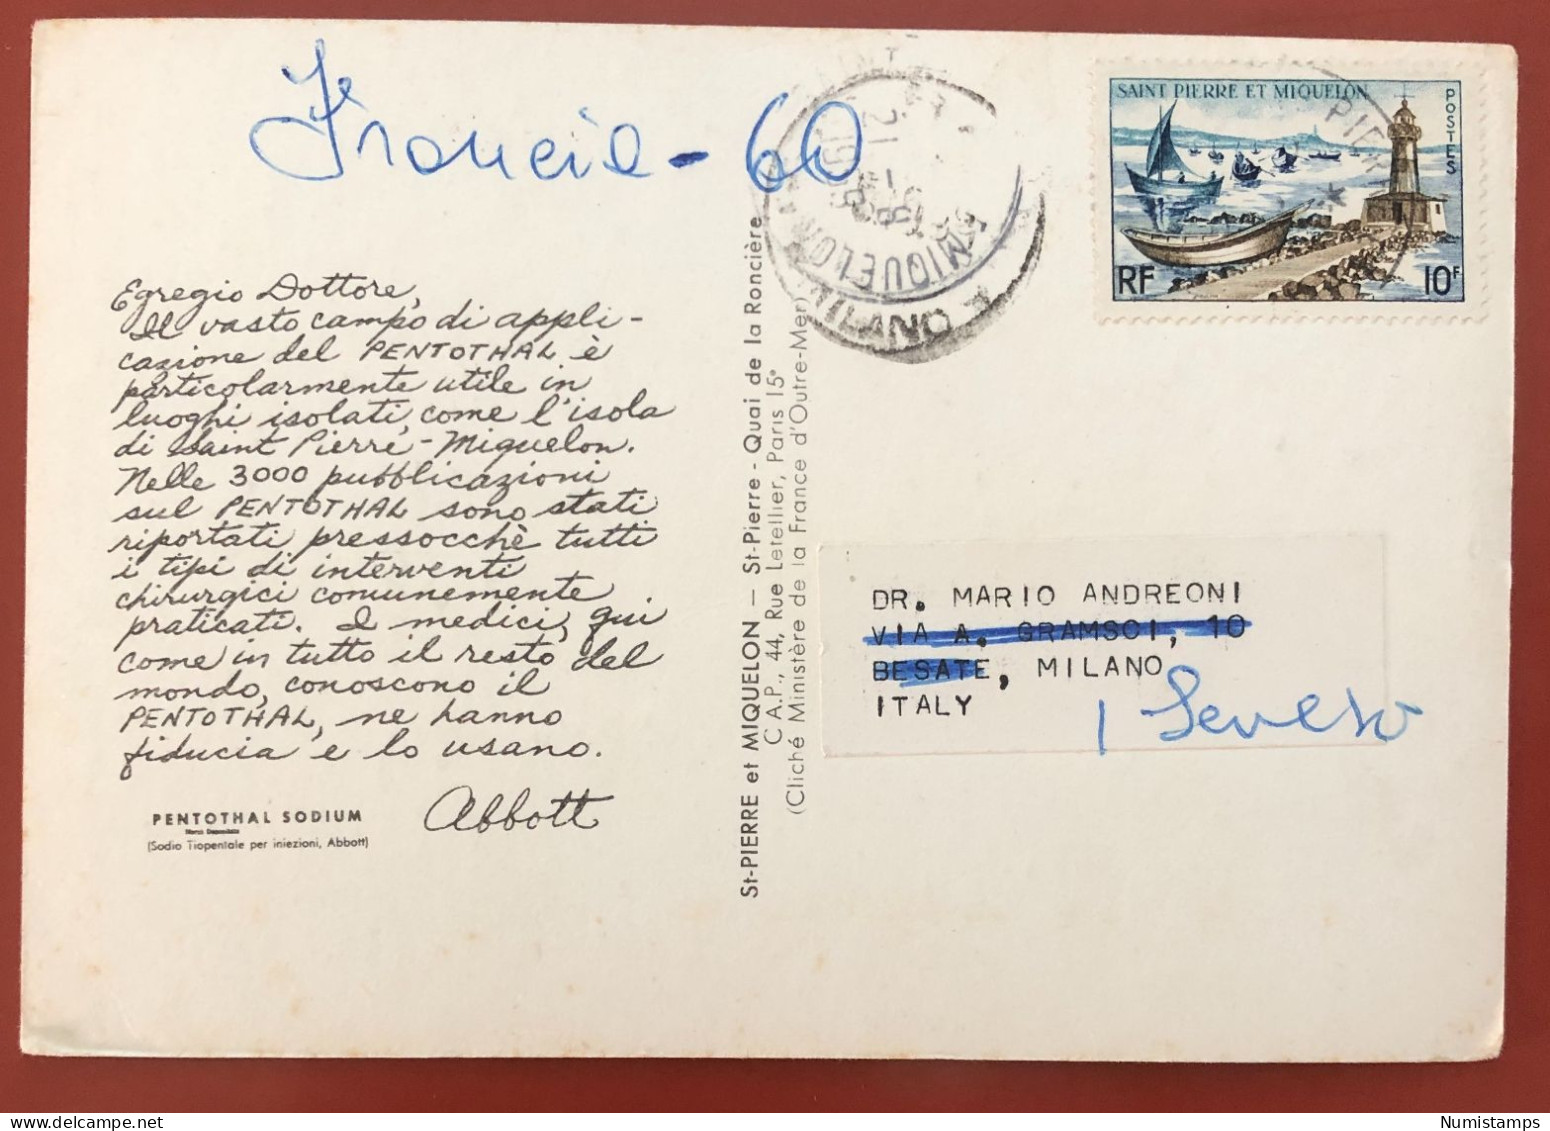 Francia - 60
SAINT PIERRE ET MIQUELON
POSTES
RF
10F
MIQUELON
MILANO
Egregio Dottore,
Il vasto campo di appli-
cazione del PENTOTHAL è
particolarmente utile in
luoghi isolati, come l'isola
di Saint Pierre-Miquelon.
Nelle 3000 pubblicazioni
sul PENTOTHAL sono stati
riportati pressocchè tutti
i tipi di interventi
chirurgici comunemente
praticati. I medici, qui
come in tutto il resto del
mondo, conoscono il
PENTOTHAL, ne hanno
fiducia e lo usano.
Abbott
PENTOTHAL SODIUM
(Sodio Tiopentale per iniezioni, Abbott)
St-PIERRE et MIQUELON — St-Pierre - Quai de la Roncière
C.A.P., 44, Rue Letellier, Paris 15e
(Cliché Ministère de la France d'Outre-Mer)
DR. MARIO ANDREONI
VIA A. GRAMSCI, 10
BESATE, MILANO
ITALY
Seveso
Numistamps